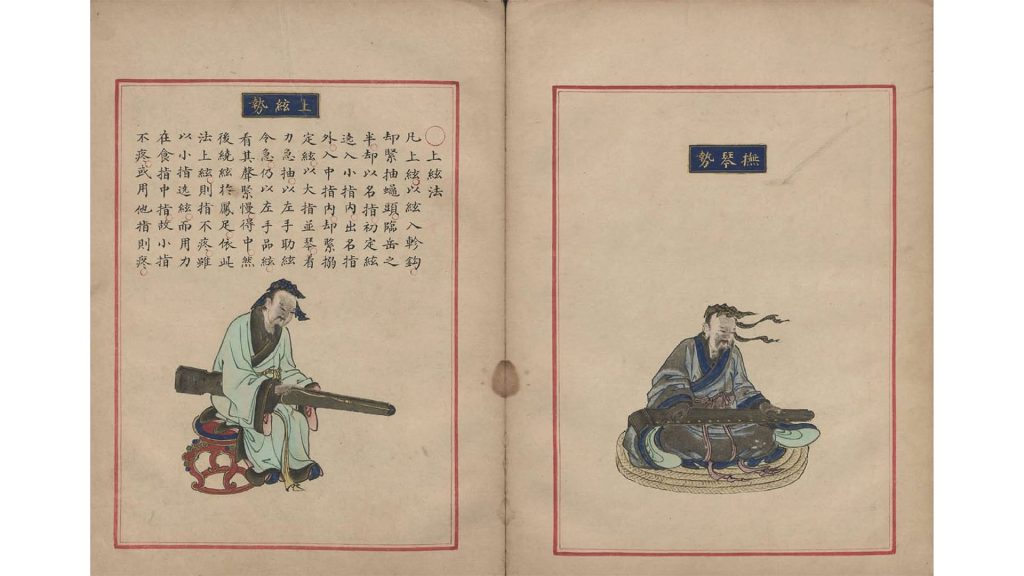 撫琴勢
上絃勢
〇上絃法
凡上絃以絃入軫鈎
却緊抽蠅頭臨岳之
半却以名指初定絃
遶入小指內出名指
外入中指內却緊搦
定絃以大指並琴着
力急抽以左手助絃
令急仍以左手品絃
看其聲緊慢得中然
後繞絃於鳳足依此
法上絃則指不疼雖
以小指遶絃而用力
在食指中指故小指
不疼或用他指則疼